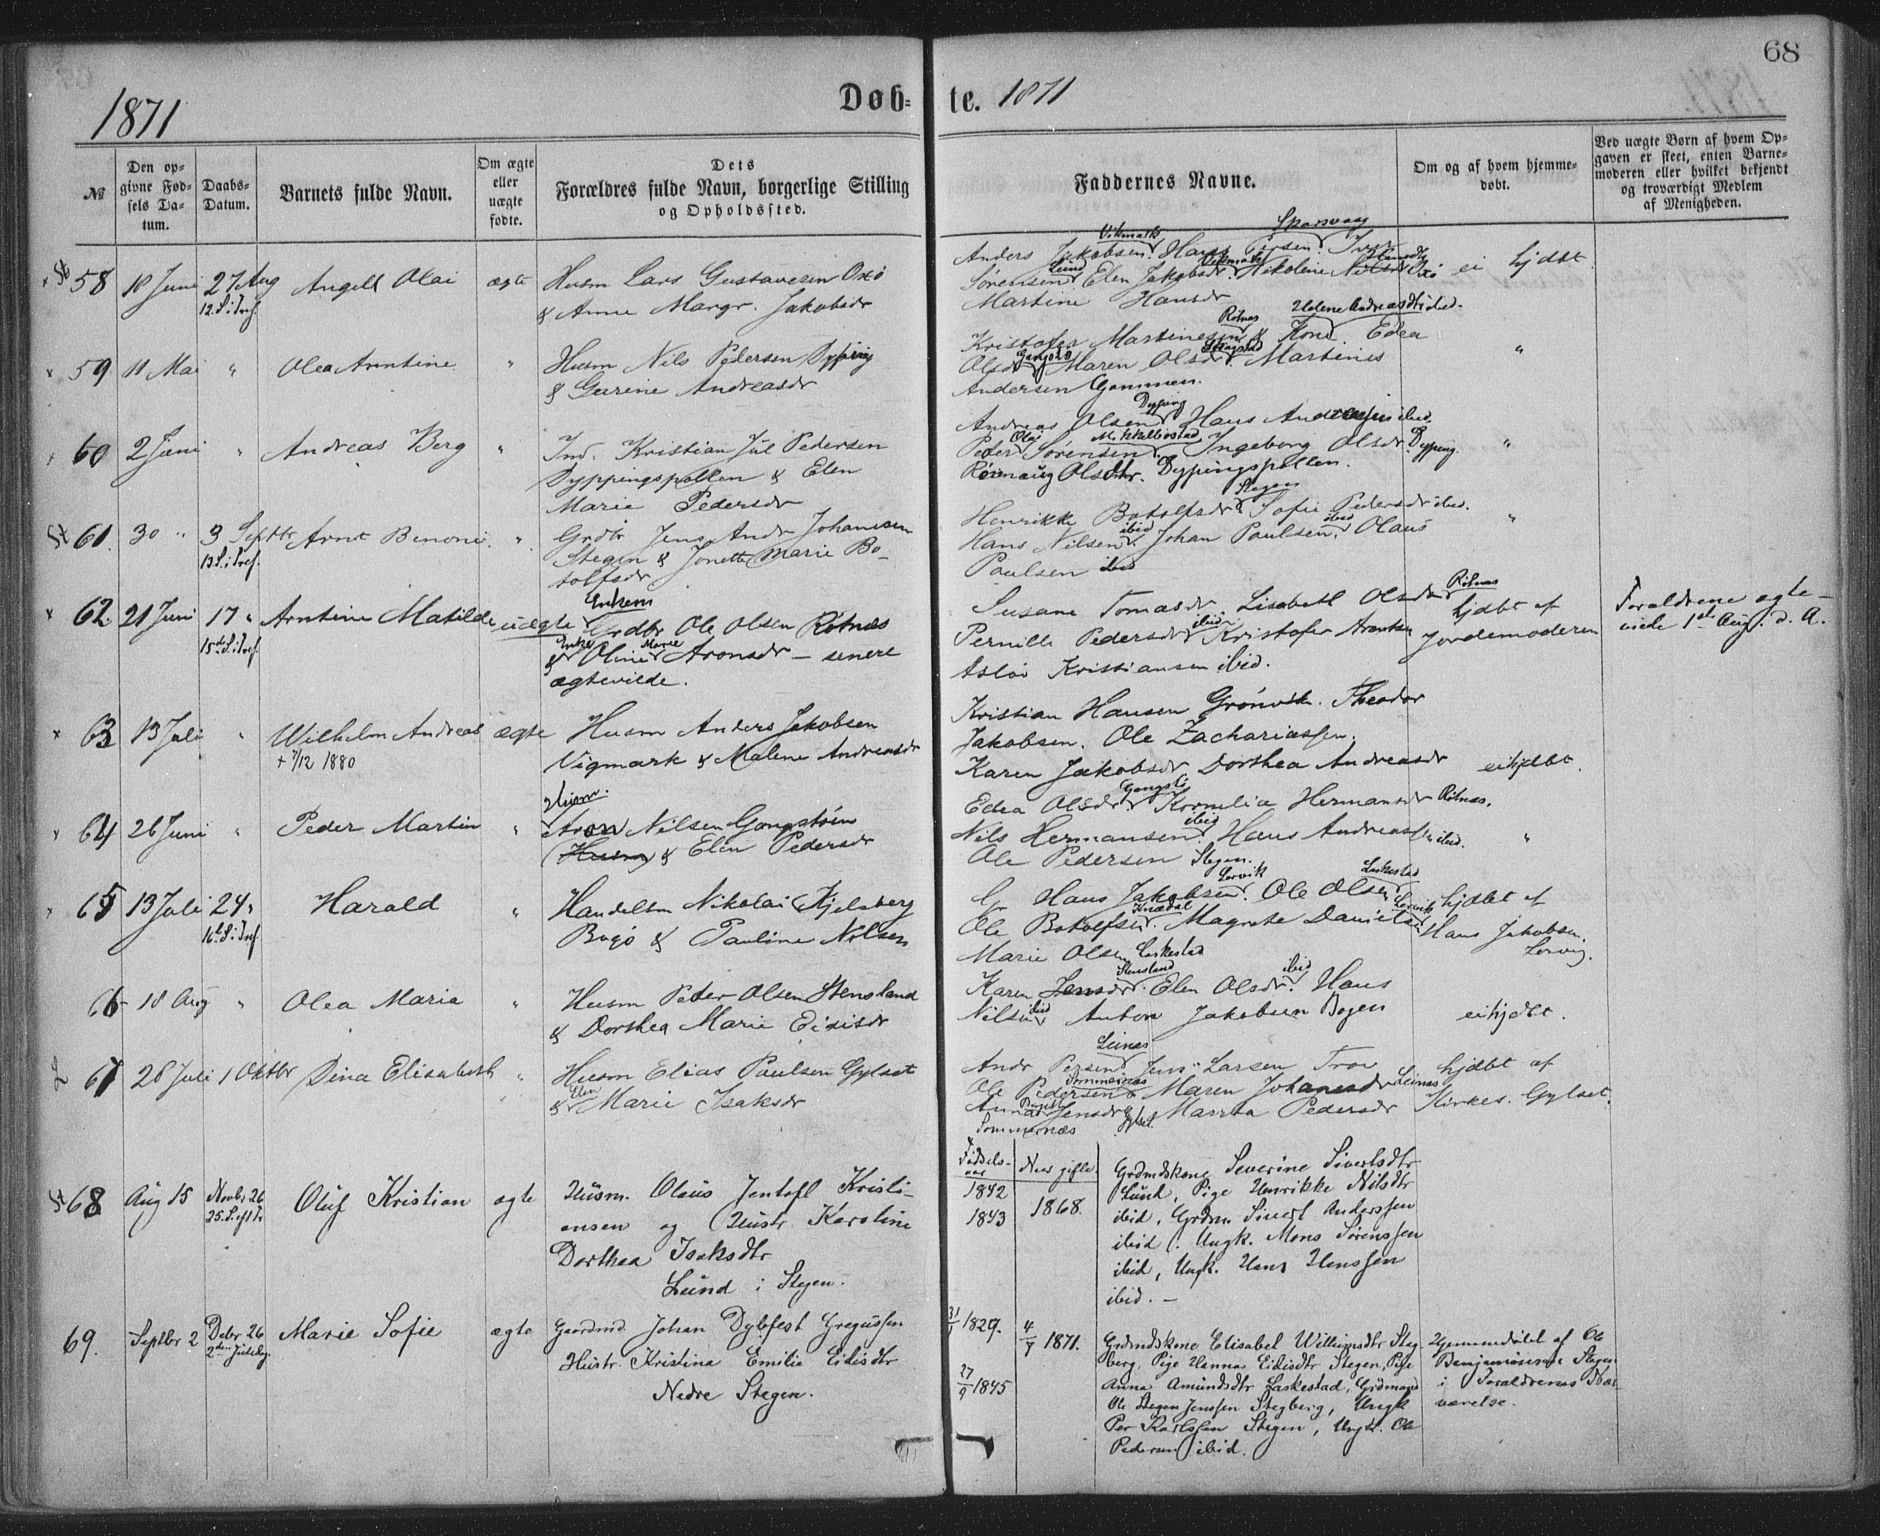 68
1871
Døb- te. 1871
№
Den opgivne Fødsels Datum.
Daabs-Datum.
Barnets fulde Navn.
Om ægte eller uægte fødte.
Dets Forældres fulde Navn, borgerlige Stilling og Opholdssted.
Faddernes Navne.
Om og af hvem hjemmedøbt.
Ved uægte Børn af hvem Opgaven er skeet, enten Barnemoderen eller hvilket bekjendt og troværdigt Medlem af Menigheden.
58 18 Juni 27 Aug Angell Olai ægte Husm Lars Gustavesen Oxø
12. S. i Tref. & Anne Margr. Jakobsdr
Vikmark Sparvaag
Anders Jakobsen. Hans Persen. Iver
Sørensen Elen Jakobsdr Nikoline Nilsdr Oxø ei hjdbt
Martine Hansdr
59 11 Mai " Olea Arntine " Husm Nils Pedersen Dypping
& Gurine Andreasdr
Rötnæs Helene Andreasdtr ibid.
Kristofer Martinesen & Kone. Edea
Olsdr Maren Olsdr. Martines "
Andersen Gammen.
60 2 Juni " Andreas Berg " Ind. Kristian Jul Pedersen
Dyppingspollen & Elen
Marie Pedersdr
Andreas Olsen Hans Andreassen ibid.
Peder Sørensen. Ingeborg Olsdr Dypping. "
Rönnaug Olsdtr. Dypingspollen.
61. 30 " 3 Septbr Arnt Benoni. " Grdbr Jens Andr Johansen
13 S. i Tref. Stegen & Jonette Marie Botolfsdr
Stegen
Henrikke Botolfsdr Sofie Pedersdr ibid.
Hans Nilsen ibid Johan Paulsen. ibid Olaus "
Paulsen ibid
62. 21 Juni 17 " Arntine Matilde uægte Enkem Grdbr Ole Olsen Rötnæs
15de S. i Tref. & Enke Oline Marie Aronsdr — senere
ægteviede.
Susane Tomasdr. Lisabeth Olsdr Rötnæs
Pernille Pedersdr ibid Kristofer Arontsen
Aslöi Kristiansen ibid.
hjdbt af
Jordemoderen
Foraldrene ægteviede 1ste Aug. d. A.
63 13 Juli " Wilhelm Andreas ægte Husm Anders Jakobsen
+ 7/12 1880 Vigmark & Malene Andreasdr
Kristian Hansen Grönvik. Theodor
Jakobsen. Ole Zachariassen.
Karen Jakobsdr Dorthea Andreasdr ei hjdbt.
64 26 Juni " Peder Martin " Husm. Aron Nilsen Gangstöin
& Elen Pedersdr
Edea Olsdr Kornelia Hermansdr Rötnæs.
Nils Hermansen ibid. Hans Andreassen ibid. "
Ole Pedersen Stegen.
65 13 Juli 24 " Harald " Handelsm Nikolai Kjelsberg
16de S. i Tref. Bogö & Pauline Nilsen
Hans Jakobsen Lorvik. Ole Olsen Laskestad
Ole Botolfsen Knædal. Magrete Danielsen Lorvik
Marie Olsen Laskestad
hjdbt af
Hans Jakobsen.
Lorvig.
66 18 Aug " Olea Maria " Husm Peter Olsen Stensland
& Dorthea Marie Eidisdr
Karen Jensdr. Stensland Elen Olsdr. ibid Hans
Nilsen ibid Anton Jakobsen Bogen ei hjdbt.
67 26 Juli 1 Oktbr Dina Elisabeth " Husm Elias Paulsen Gylset
& Elen Marie Isaksdr
Andr Persen Leinæs Jens Larsen Troe
Ole Pedersen Sommernæs Maren Johansdr Leinæs
Anna Jensdr Gylset Martha Pedersdr
Sommernæs
hjdbt af
Kirkes. Gylset.
Fødselsaar Naar gifte.
68 Aug 15 Novbr 26 Oluf Kristian ægte Husm. Olaus Jentoft Kristiansen og Hustr. Karoline
25. S. eft Tr Dorthea Isaksdtr
Lund i Stegen.
1842
1843 1868.
Grdmdskone Severine Sivertsdtr
Lund, Pige Henrikke Nilsdtr
ibid, Grdm. Sivert Anderssen
ibid, Ungk. Mons Sørenssen
ibid, Ungk. Hans Henssen
ibid. —
69. Septbr 2 Debr 26 Marie Sofie ægte Gaardmd Johan Dybfest Gregussen
2den Juledag. Hustr. Kristina Emilie Eidisdtr
Nedre Stegen.
1829. 4/7 1871.
27/9 1845
Grdmdskone Elisabet Willumsdtr Stegberg, Pige Hanna Eidisdtr Stegen, Pige
Anna Amundsdtr Laskestad, Grdmand
Ole Stegen Jenssen Stegberg, Ungk
Per Karlssen Stegen, Ungk. Ole
Pedersen ibid.
Hjemmedöbt af Ole
Benjaminsen Stegen
i Foraldrenes Nærværelse.